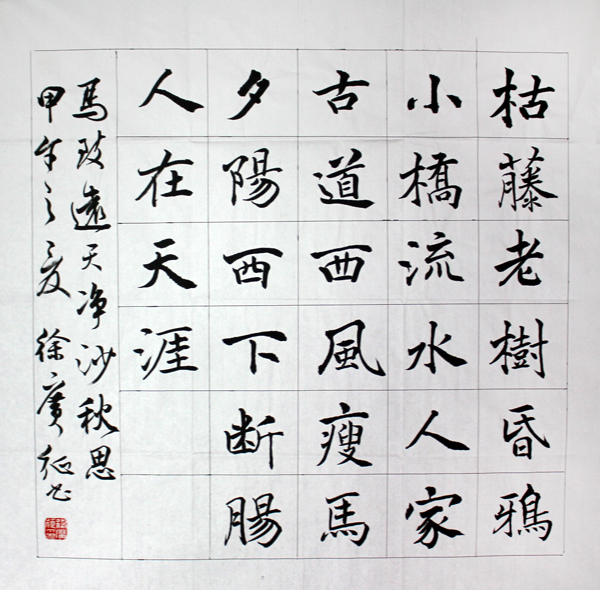 枯藤老樹昏鴉
小橋流水人家
古道西風瘦馬
夕陽西下断腸
人在天涯
馬致遠天净沙秋思
甲午之夏 徐廣